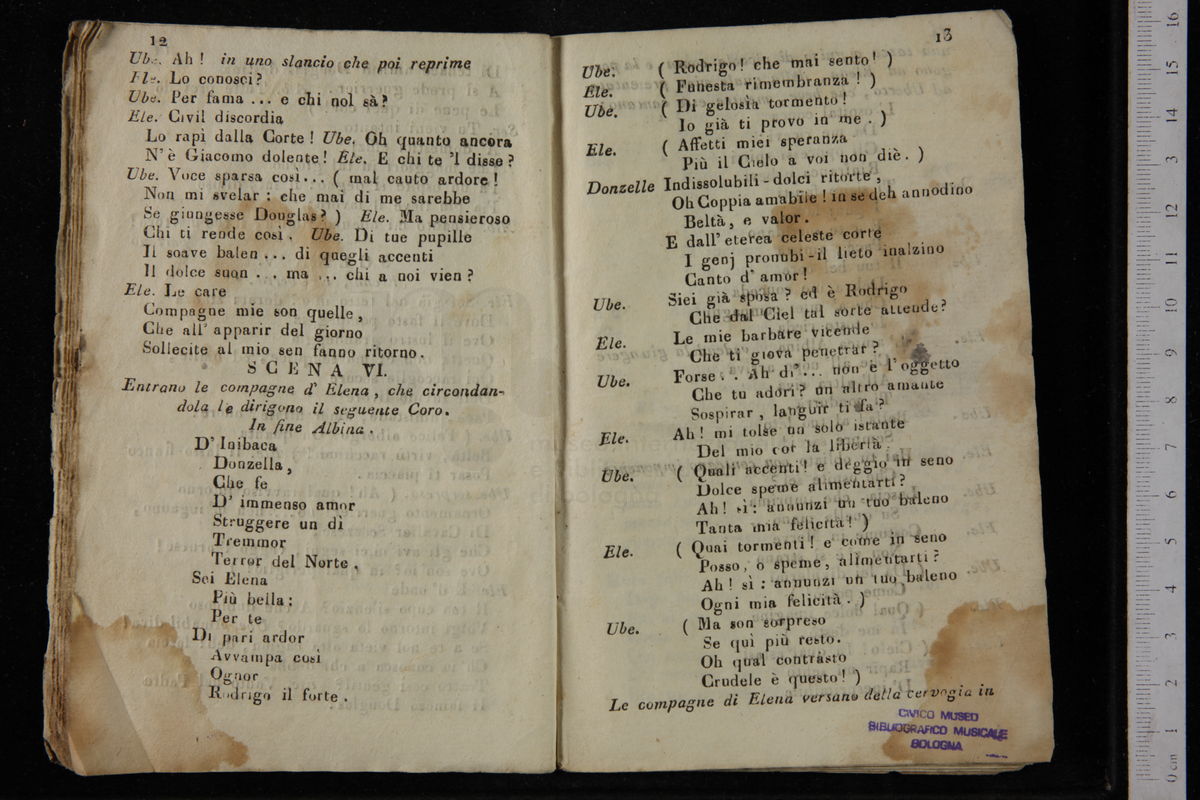 12
Ube. Ah! in uno slancio che poi reprime
Ele. Lo conosci?
Ube. Per fama ... e chi nol sà?
Ele. Civil discordia
Lo rapì dalla Corte! Ube. Oh quanto ancora
N'è Giacomo dolente! Ele. E chi te 'l disse?
Ube. Voce sparsa così... ( mal cauto ardore!
Non mi svelar : che mai di me sarebbe
Se giungesse Douglas? ) Ele. Ma pensieroso
Chi ti rende così. Ube. Di tue pupille
Il soave balen ... di quegli accenti
Il dolce suon ... ma ... chi a noi vien?
Ele. Le care
Compagne mie son quelle,
Che all' apparir del giorno
Sollecite al mio sen fanno ritorno.
SCENA VI.
Entrano le compagne d' Elena, che circondan-
dola le dirigono il seguente Coro.
In fine Albina.
D' Inibaca
Donzella,
Che fe
D' immenso amor
Struggere un dì
Tremmor
Terror del Norte.
Sei Elena
Più bella:
Per te
Di pari ardor
Avvampa così
Ognor
Rodrigo il forte.
13
Ube. ( Rodrigo! che mai sento! )
Ele. ( Funesta rimembranza! )
Ube. ( Di gelosia tormento!
Io già ti provo in me. )
Ele. ( Affetti miei speranza
Più il Cielo a voi non diè. )
Donzelle Indissolubili - dolci ritorte,
Oh Coppia amabile! in se deh annodino
Beltà, e valor.
E dall' eterea celeste corte
I genj pronubi - il lieto inalzino
Canto d' amor!
Ube. Siei già sposa? ed è Rodrigo
Che dal Ciel tal sorte attende?
Ele. Le mie barbare vicende
Che ti giova penetrar?
Ube. Forse . . Ah di' ... non è l'oggetto
Che tu adori? un altro amante
Sospirar, languir ti fa?
Ele. Ah! mi tolse un solo istante
Del mio cor la libertà.
Ube. ( Quali accenti! e deggio in seno
Dolce speme alimentarti?
Ah! sì: annunzi un tuo baleno
Tanta mia felicità! )
Ele. ( Quai tormenti! e come in seno
Posso, o speme, alimentarti?
Ah! sì : annunzi un tuo baleno
Ogni mia felicità. )
Ube. ( Ma son sorpreso
Se quì più resto.
Oh qual contrasto
Crudele è questo! )
Le compagne di Elena versano della cervogia in
CIVICO MUSEO
BIBLIOGRAFICO MUSICALE
BOLOGNA